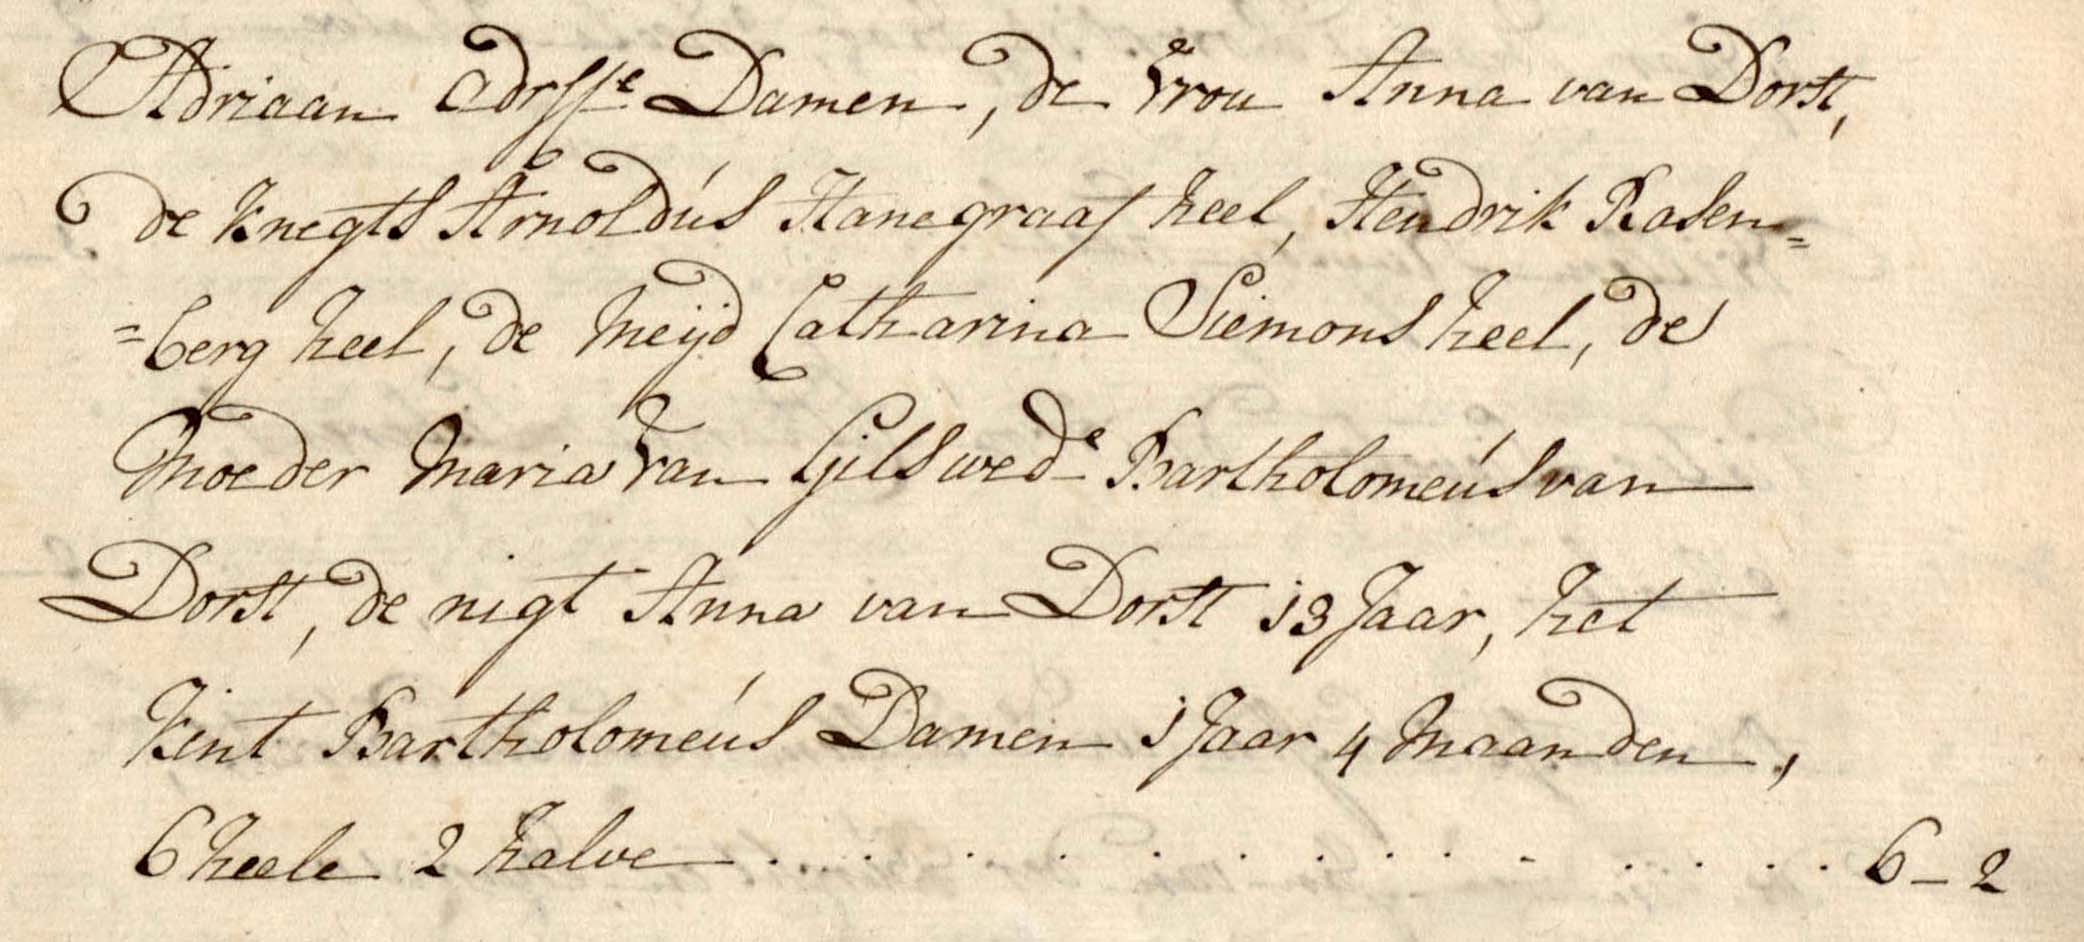 Adriaan Adrsse Damen, de vrou Anna van Dorst,
de knegts Arnoldús Hanegraaf heel, Hendrik Rosen=
=berg heel, de meijd Catharina Siemons heel, de
Moeder Maria van Gils wede Bartholomeús van
Dorst, de nigt Anna van Dorst 13 Jaar, het
kint Bartholomeús Damen 1 Jaar 4 Maanden,
6 heele 2 halve . . . . . . . . . . . . . . . 6 - 2